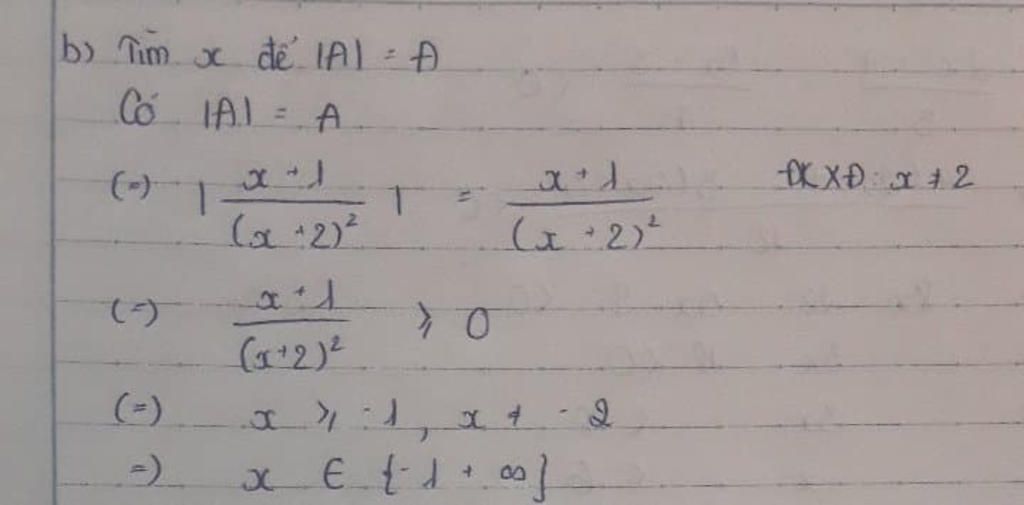 b) Tìm x để |A| = A
Có |A| = A
(=) | x + 1 / (x + 2)² | = x + 1 / (x + 2)² ĐKXĐ: x ≠ 2
(=) x + 1 / (x + 2)² ⩾ 0
(=) x ⩾ -1, x ≠ -2
=) x ∈ {-1 + ∞}